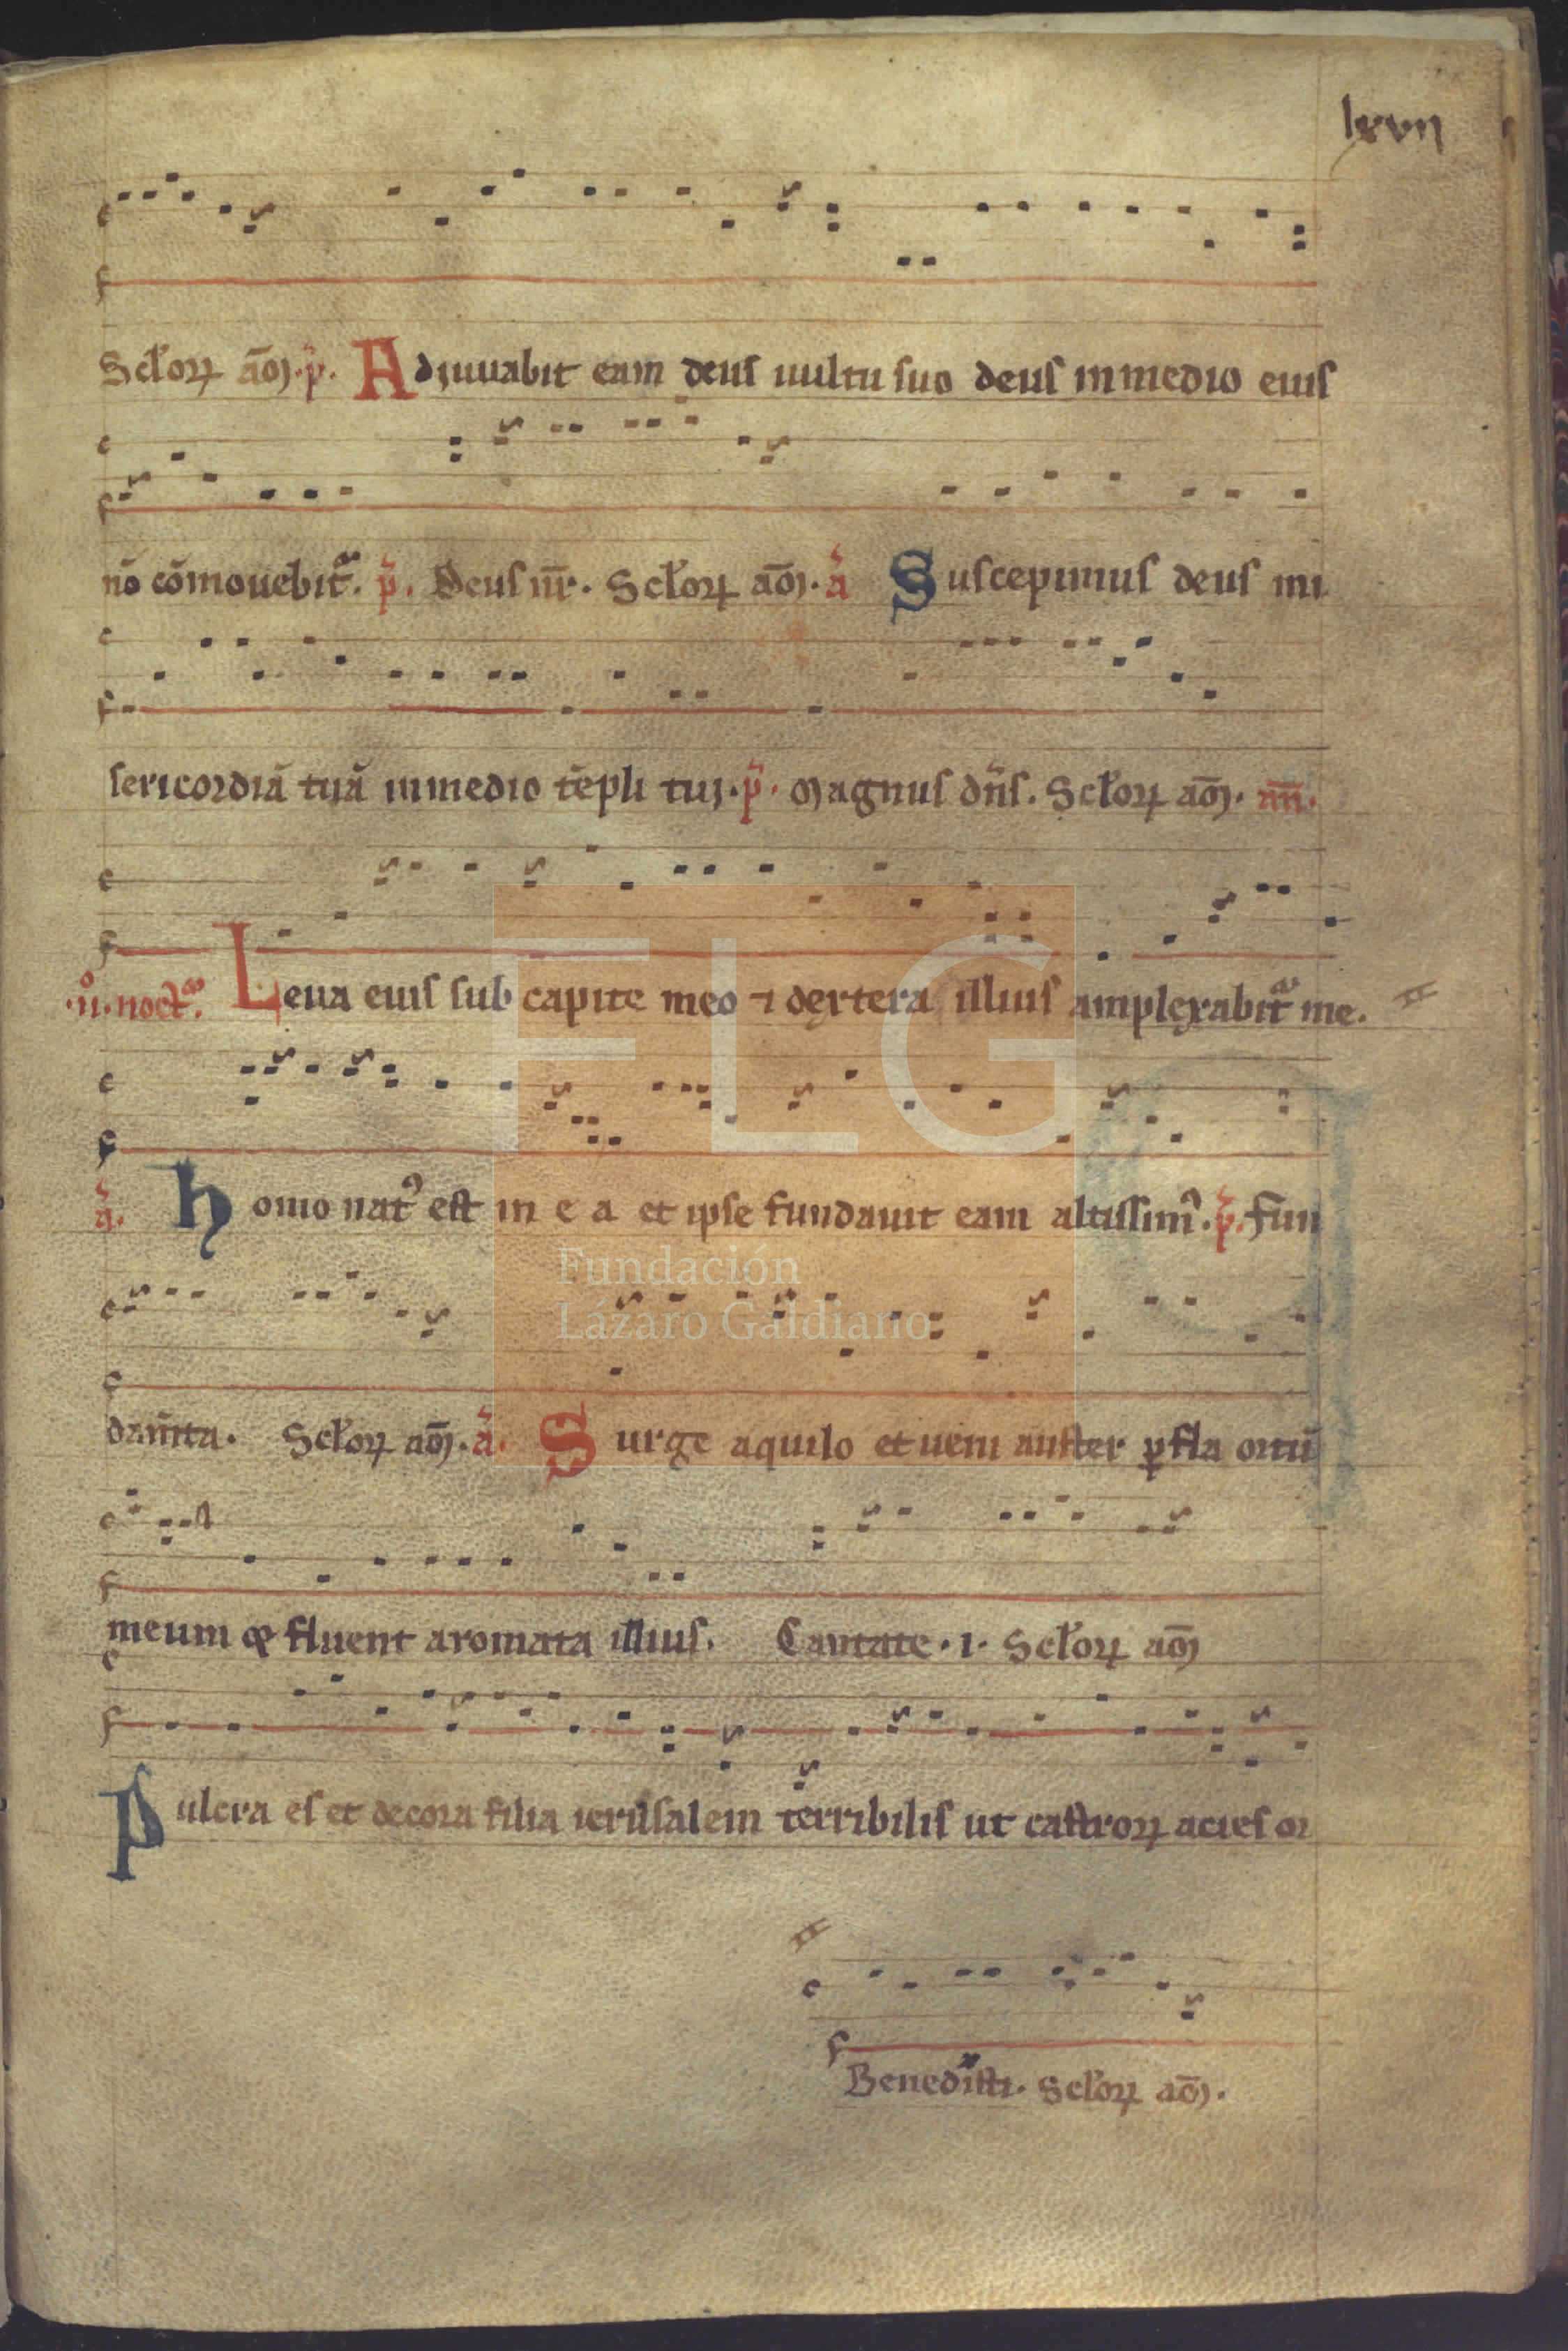 lxvii
Sctorꝝ am̄. p̄. Adiuuabit eam deus uultu suo deus in medio eius
nō cōmouebit᷑. p̄. Deus nr̄. Sctorꝝ am̄. ā Suscepimus deus mi
sericordiā tuā in medio tēpli tui. p̄. Magnus dn̄s. Sctorꝝ am̄.
.ii.o noct᷑. Leua eius sub capite meo ⁊ dextera illius amplexabit᷑ me.
ā. Homo natꝰ est in e a et ipse fundauit eam altissimꝰ. p̄. Fun
FLG
Fundación
Lázaro Galdiano
dam̄ta. Sctorꝝ am̄. ā. Surge aquilo et ueni auster ꝑfla ortū
meum ⁊ fluent aromata illius. Cantate .i. Sctorꝝ am̄
Pulcra es et decora filia ierusalem terribilis ut castrorꝝ acies or
Benedisti. Sctorꝝ am̄.